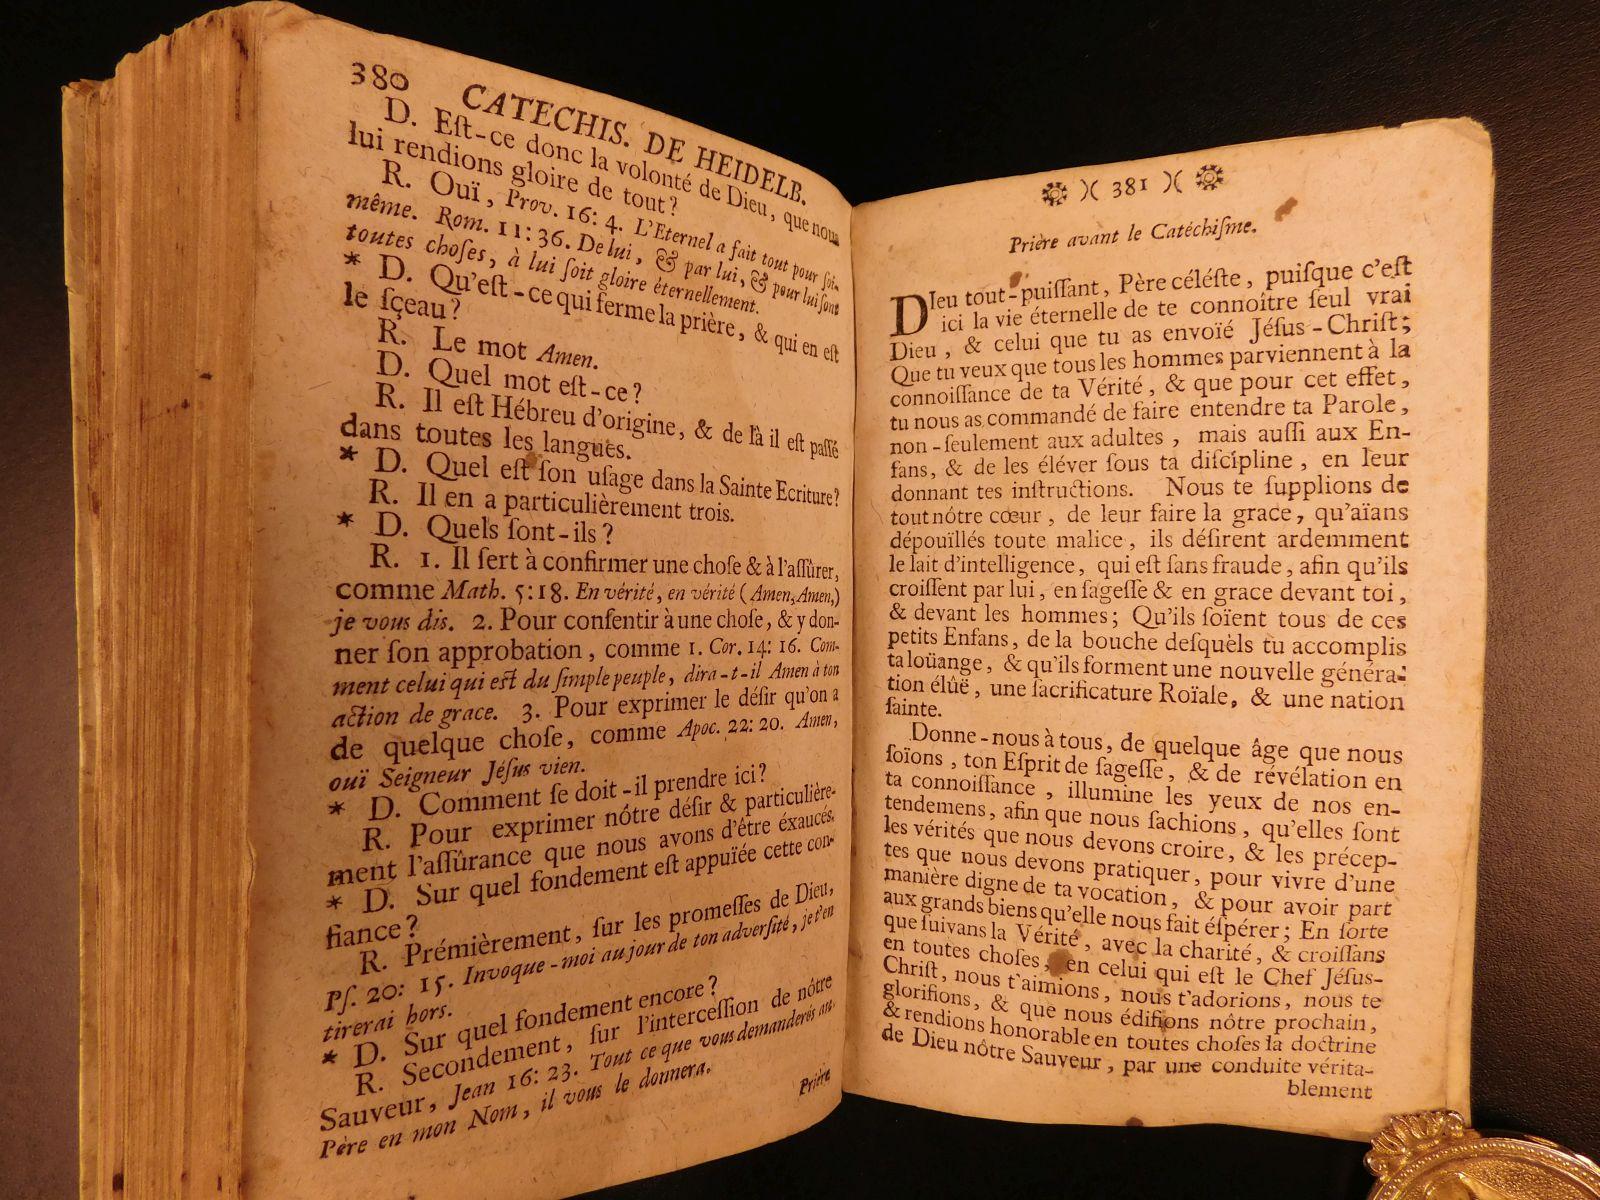 380 CATECHIS. DE HEIDELB.
D. Eſt-ce donc la volonté de Dieu, que nous
lui rendions gloire de tout?
R. Ouï, Prov. 16: 4. L'Eternel a fait tout pour ſoi-
même. Rom. 11: 36. De lui, & par lui, & pour lui ſont
toutes choſes, à lui ſoit gloire éternellement.
* D. Qu'eſt-ce qui ferme la prière, & qui en eſt
le ſçeau?
R. Le mot Amen.
D. Quel mot eſt-ce?
R. Il eſt Hébreu d'origine, & de là il eſt paſſé
dans toutes les langues.
* D. Quel eſt ſon uſage dans la Sainte Ecriture?
R. Il en a particulièrement trois.
* D. Quels ſont-ils?
R. 1. Il ſert à confirmer une choſe & à l'aſſûrer,
comme Math. 5:18. En vérité, en vérité (Amen, Amen,)
je vous dis. 2. Pour conſentir à une choſe, & y don-
ner ſon approbation, comme 1. Cor. 14: 16. Com-
ment celui qui eſt du ſimple peuple, dira-t-il Amen à ton
action de grace. 3. Pour exprimer le déſir qu'on a
de quelque choſe, comme Apoc. 22: 20. Amen,
ouï Seigneur Jéſus vien.
* D. Comment ſe doit-il prendre ici?
R. Pour exprimer nôtre déſir & particulière-
ment l'aſſûrance que nous avons d'être éxaucés.
* D. Sur quel fondement eſt appuïée cette con-
fiance?
R. Prémièrement, ſur les promeſſes de Dieu,
Pſ. 20: 15. Invoque-moi au jour de ton adverſité, je t'en
tirerai hors.
* D. Sur quel fondement encore?
R. Secondement, ſur l'interceſſion de nôtre
Sauveur, Jean 16: 23. Tout ce que vous demanderés au
Père en mon Nom, il vous le donnera.
Prière
)( 381 )(
Prière avant le Catéchiſme.
DIeu tout-puiſſant, Père céléſte, puiſque c'eſt
ici la vie éternelle de te connoître ſeul vrai
Dieu, & celui que tu as envoïé Jéſus-Chriſt;
Que tu veux que tous les hommes parviennent à la
connoiſſance de ta Vérité, & que pour cet effet,
tu nous as commandé de faire entendre ta Parole,
non-ſeulement aux adultes, mais auſſi aux En-
fans, & de les éléver ſous ta diſcipline, en leur
donnant tes inſtructions. Nous te ſupplions de
tout nôtre cœur, de leur faire la grace, qu'aïans
dépouïllés toute malice, ils déſirent ardemment
le lait d'intelligence, qui eſt ſans fraude, afin qu'ils
croiſſent par lui, en ſageſſe & en grace devant toi,
& devant les hommes; Qu'ils ſoïent tous de ces
petits Enfans, de la bouche deſquèls tu accomplis
ta loüange, & qu'ils forment une nouvelle généra-
tion élûë, une ſacrificature Roïale, & une nation
ſainte.
Donne-nous à tous, de quelque âge que nous
ſoïons, ton Eſprit de ſageſſe, & de révélation en
ta connoiſſance, illumine les yeux de nos en-
tendemens, afin que nous ſachions, qu'elles ſont
les vérités que nous devons croire, & les précep-
tes que nous devons pratiquer, pour vivre d'une
manière digne de ta vocation, & pour avoir part
aux grands biens qu'elle nous fait éſpérer; En ſorte
que ſuivans la Vérité, avec la charité, & croiſſans
en toutes choſes, en celui qui eſt le Chef Jéſus-
Chriſt, nous t'aimions, nous t'adorions, nous te
glorifions, & que nous édifions nôtre prochain,
& rendions honorable en toutes choſes la doctrine
de Dieu nôtre Sauveur, par une conduite vérita-
blement